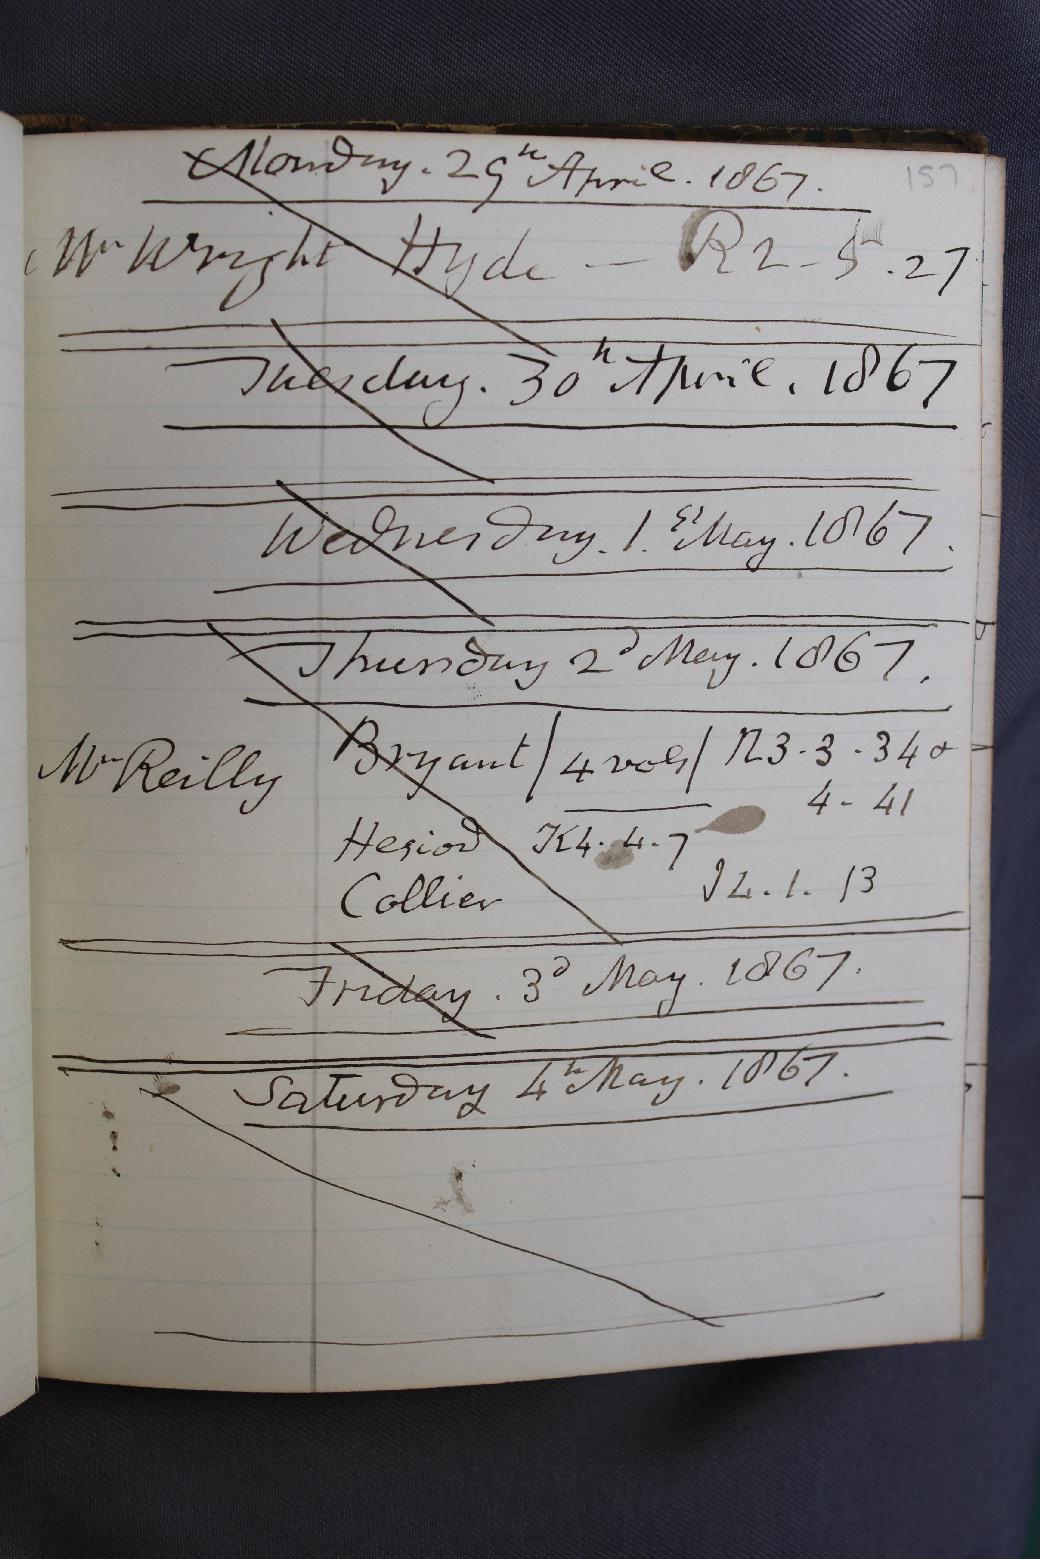 157
Monday. 29th April. 1867.
Mr Wright Hyde — R2-5.27
Tuesday. 30th April. 1867
Wednesday. 1.st May. 1867.
Thursday 2d May. 1867.
Mr Reilly Bryant / 4 vols / N3-3-34 &
4-41
Hesiod K4.4.7
Collier J4.1.13
Friday. 3d May. 1867.
Saturday 4th May. 1867.